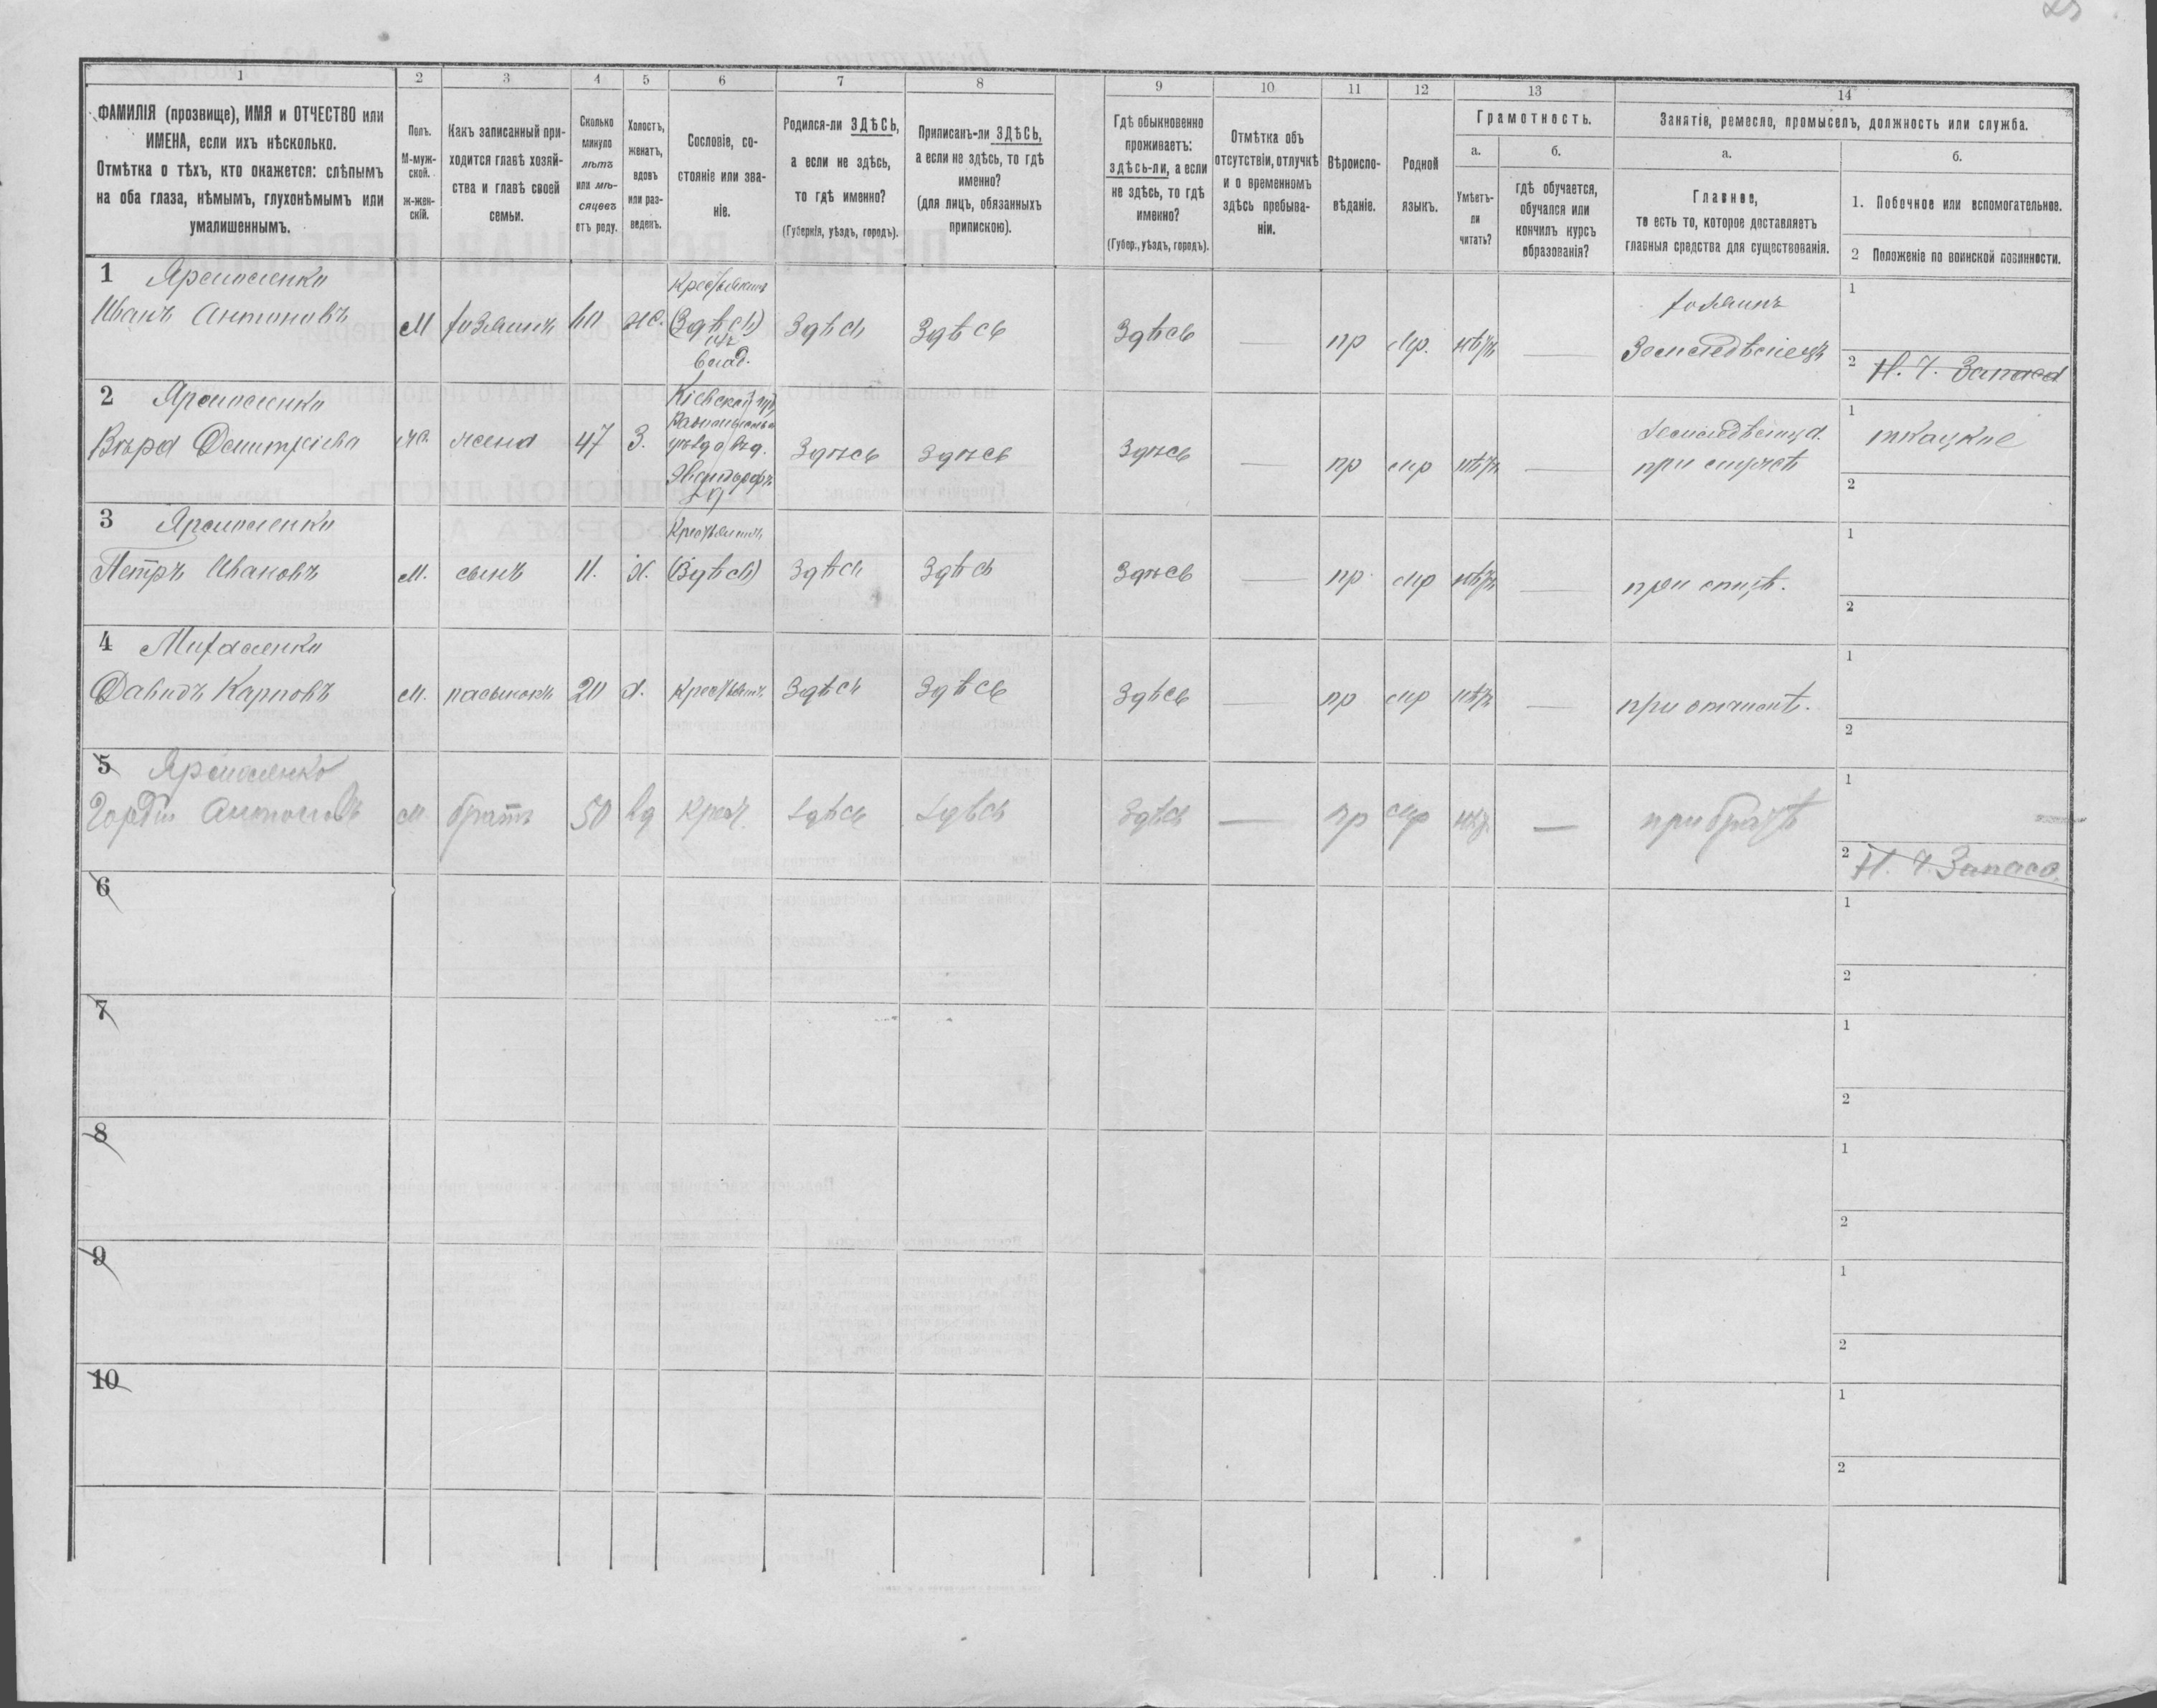 25
1
2
3
4
5
6
7
8
9
10
11
12
13
14
ФАМИЛІЯ (прозвище), ИМЯ и ОТЧЕСТВО или
ИМЕНА, если ихъ нѣсколько.
Отмѣтка о тѣхъ, кто окажется: слѣпымъ
на оба глаза, нѣмымъ, глухонѣмымъ или
умалишеннымъ.
Полъ.
М-муж-
ской.
ж-жен-
скій.
Какъ записанный при-
ходится главѣ хозяй-
ства и главѣ своей
семьи.
Сколько
минуло
лѣтъ
или мѣ-
сяцевъ
отъ роду.
Холостъ,
женатъ,
вдовъ
или раз-
веденъ.
Сословіе, со-
стояніе или зва-
ніе.
Родился-ли ЗДѢСЬ,
а если не здѣсь,
то гдѣ именно?
(Губернія, уѣздъ, городъ).
Приписанъ-ли ЗДѢСЬ,
а если не здѣсь, то гдѣ
именно?
(для лицъ, обязанныхъ
припискою).
Гдѣ обыкновенно
проживаетъ:
здѣсь-ли, а если
не здѣсь, то гдѣ
именно?
(Губер., уѣздъ, городъ).
Отмѣтка объ
отсутствіи, отлучкѣ
и о временномъ
здѣсь пребыва-
ніи.
Вѣроиспо-
вѣданіе.
Родной
языкъ.
Грамотность.
а.
Умѣетъ-
ли
читать?
б.
гдѣ обучается,
обучался или
кончилъ курсъ
образованія?
Занятіе, ремесло, промыселъ, должность или служба.
а.
Главное,
то есть то, которое доставляетъ
главныя средства для существованія.
б.
1. Побочное или вспомогательное.
2 Положеніе по воинской повинности.
1 Ярмоленко
Иванъ Антоновъ
М
хозяинъ
60
ж.
Крестьянинъ
(Здѣсь)
влад.
Здѣсь
Здѣсь
Здѣсь
—
пр
мр.
нѣтъ
—
хозяинъ
Земледѣлецъ
1
2 Н. Ч. Запаса
2 Ярмоленко
Вѣра Дмитріева
ж.
жена
47
З.
Кіевской губ.
Здѣсь
Здѣсь
Здѣсь
—
пр
мр
нѣтъ
—
земледѣлица
при мужѣ
1 ткацкое
2
3 Ярмоленко
Петръ Ивановъ
м.
сынъ
11.
Х.
Крестьянинъ
(Здѣсь)
Здѣсь
Здѣсь
Здѣсь
—
пр
мр
нѣтъ
—
при отцѣ.
1
2
4 Михаленко
Давидъ Карповъ
м.
пасынокъ
20
х.
Крестьянинъ
Здѣсь
Здѣсь
Здѣсь
—
пр
мр
нѣтъ
—
при отчимѣ.
1
2
5 Ярмоленко
Гордій Антоновъ
м
братъ
50
вд
крест.
Здѣсь
Здѣсь
Здѣсь
—
пр
мр
нѣт.
—
при братѣ
1
2 Н. Ч. Запаса.
6
1
2
7
1
2
8
1
2
9
1
2
10
1
2